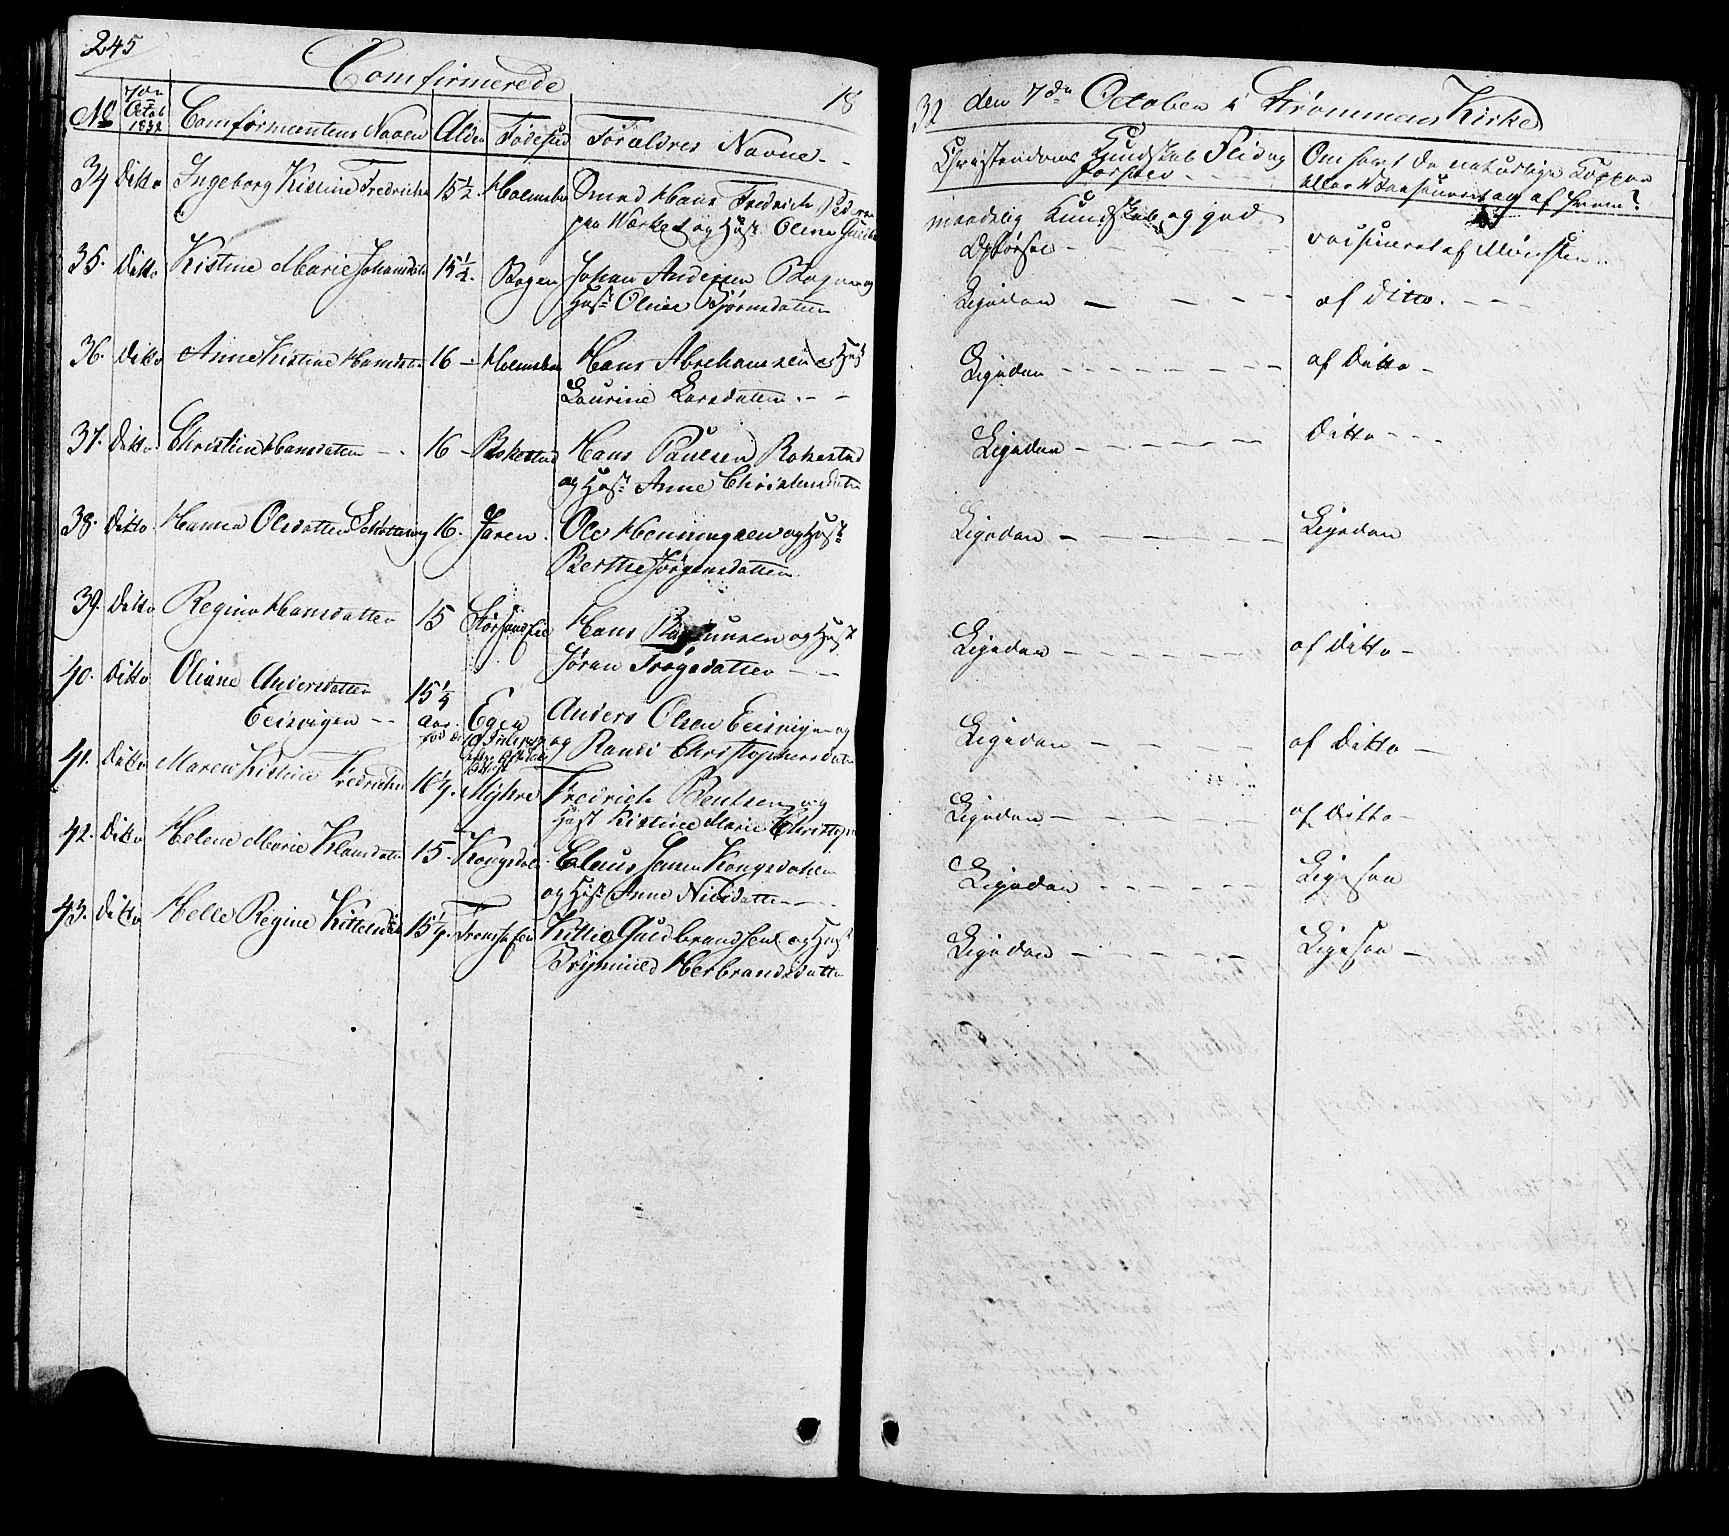 245
Comfirmerede 18
32 den 7de October i Strømmens Kirke
No 7de Octob 1832 Comfirmentens Navn Alder Fødested Forældres Navne
Christendoms Kundskab Flid og
Om havt de naturlige Kopper
eller Vaccineret og af hvem?
34 Ditto Ingeborg Kistine Fredrichs 15 1/2 Holmsbo Smed Hans Fredrich
paa Værket og Hust Oline
maadelig Kundskab og god
Opførsel vaccineret af
35. Ditto Kistine Marie Johansdat 15 1/2 Bogen Johan Andersen og
Hust Oline Bjørnsdatter
Ligedan af Ditto.
36. Ditto Anne Kistine Hansdatter 16 Holmsbo Hans Abrehamsen og Hust
Laurine Larsdatter
Ligedan af Ditto
37. Ditto Christine Hansdatter 16 Rokestad Hans Paulsen Rokestad
og Hust Anne Christensdatter
Ligedan Ditto
38. Ditto Hanna Olsdatter 16. Jaren Ole Henningsen og Hust
Berthe Jørgensdatter
Ligedan Ligedan
39. Ditto Regine Hansdatter 15 Hans og Hust
Jøran
Ligedan af Ditto
40. Ditto Oliane Andersdatter
Eeisvigen 15 1/4 Aar Egen Anders Olsen Eeisvigen og
Randi Christophersdatter
Ligedan af Ditto
41. Ditto Maren Kistine Fredrichs Myhre Fredrich Bentsen og
Hust Kistine Marie
Ligedan af Ditto
42. Ditto Helene Marie Klausdatter 15 Kongsdel Claus Jensen Kongsdelen
og Hust Anne Nilsdatter
Ligedan Ligesaa
43. Ditto Helle Regine Kittelsdat 15 1/4 Kittel Guldbrandsen og Hust
Herbrandsdatter
Ligedan Ligesaa